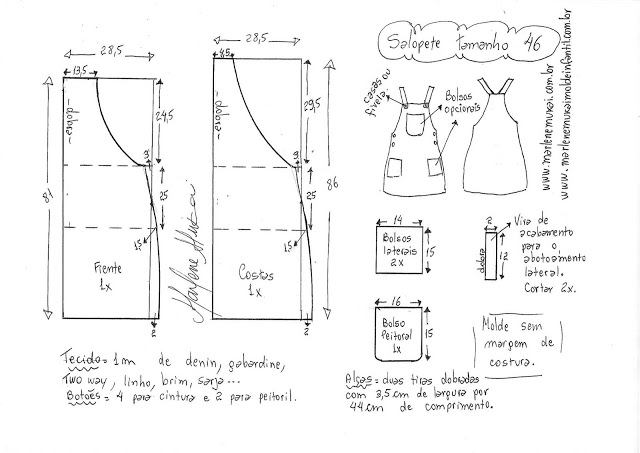 Salopete tamanho 46
www.marlenemukai.com.br
www.marlenemukaimoldeinfantil.com.br
28,5
13,5
-dobra-
24,5
81
3
25
1,5
Frente
1x
2
28,5
4,5
-dobra-
29,5
86
3
25
1,5
Costas
1x
2
Marlene Mukai
casas ou
fivela.
Bolsos
opcionais
14
Bolsos
laterais
2x
15
2
dobra
12
Vira de
acabamento
para o
abotoamento
lateral.
Cortar 2x.
16
Bolso
Peitoral
1x
15
Molde sem
margem de
costura.
Tecido = 1m de denin, gabardine,
Two way, linho, brim, sarja...
Botões = 4 para cintura e 2 para peitoril.
Alças = duas tiras dobradas
com 3,5 cm de largura por
44 cm de comprimento.